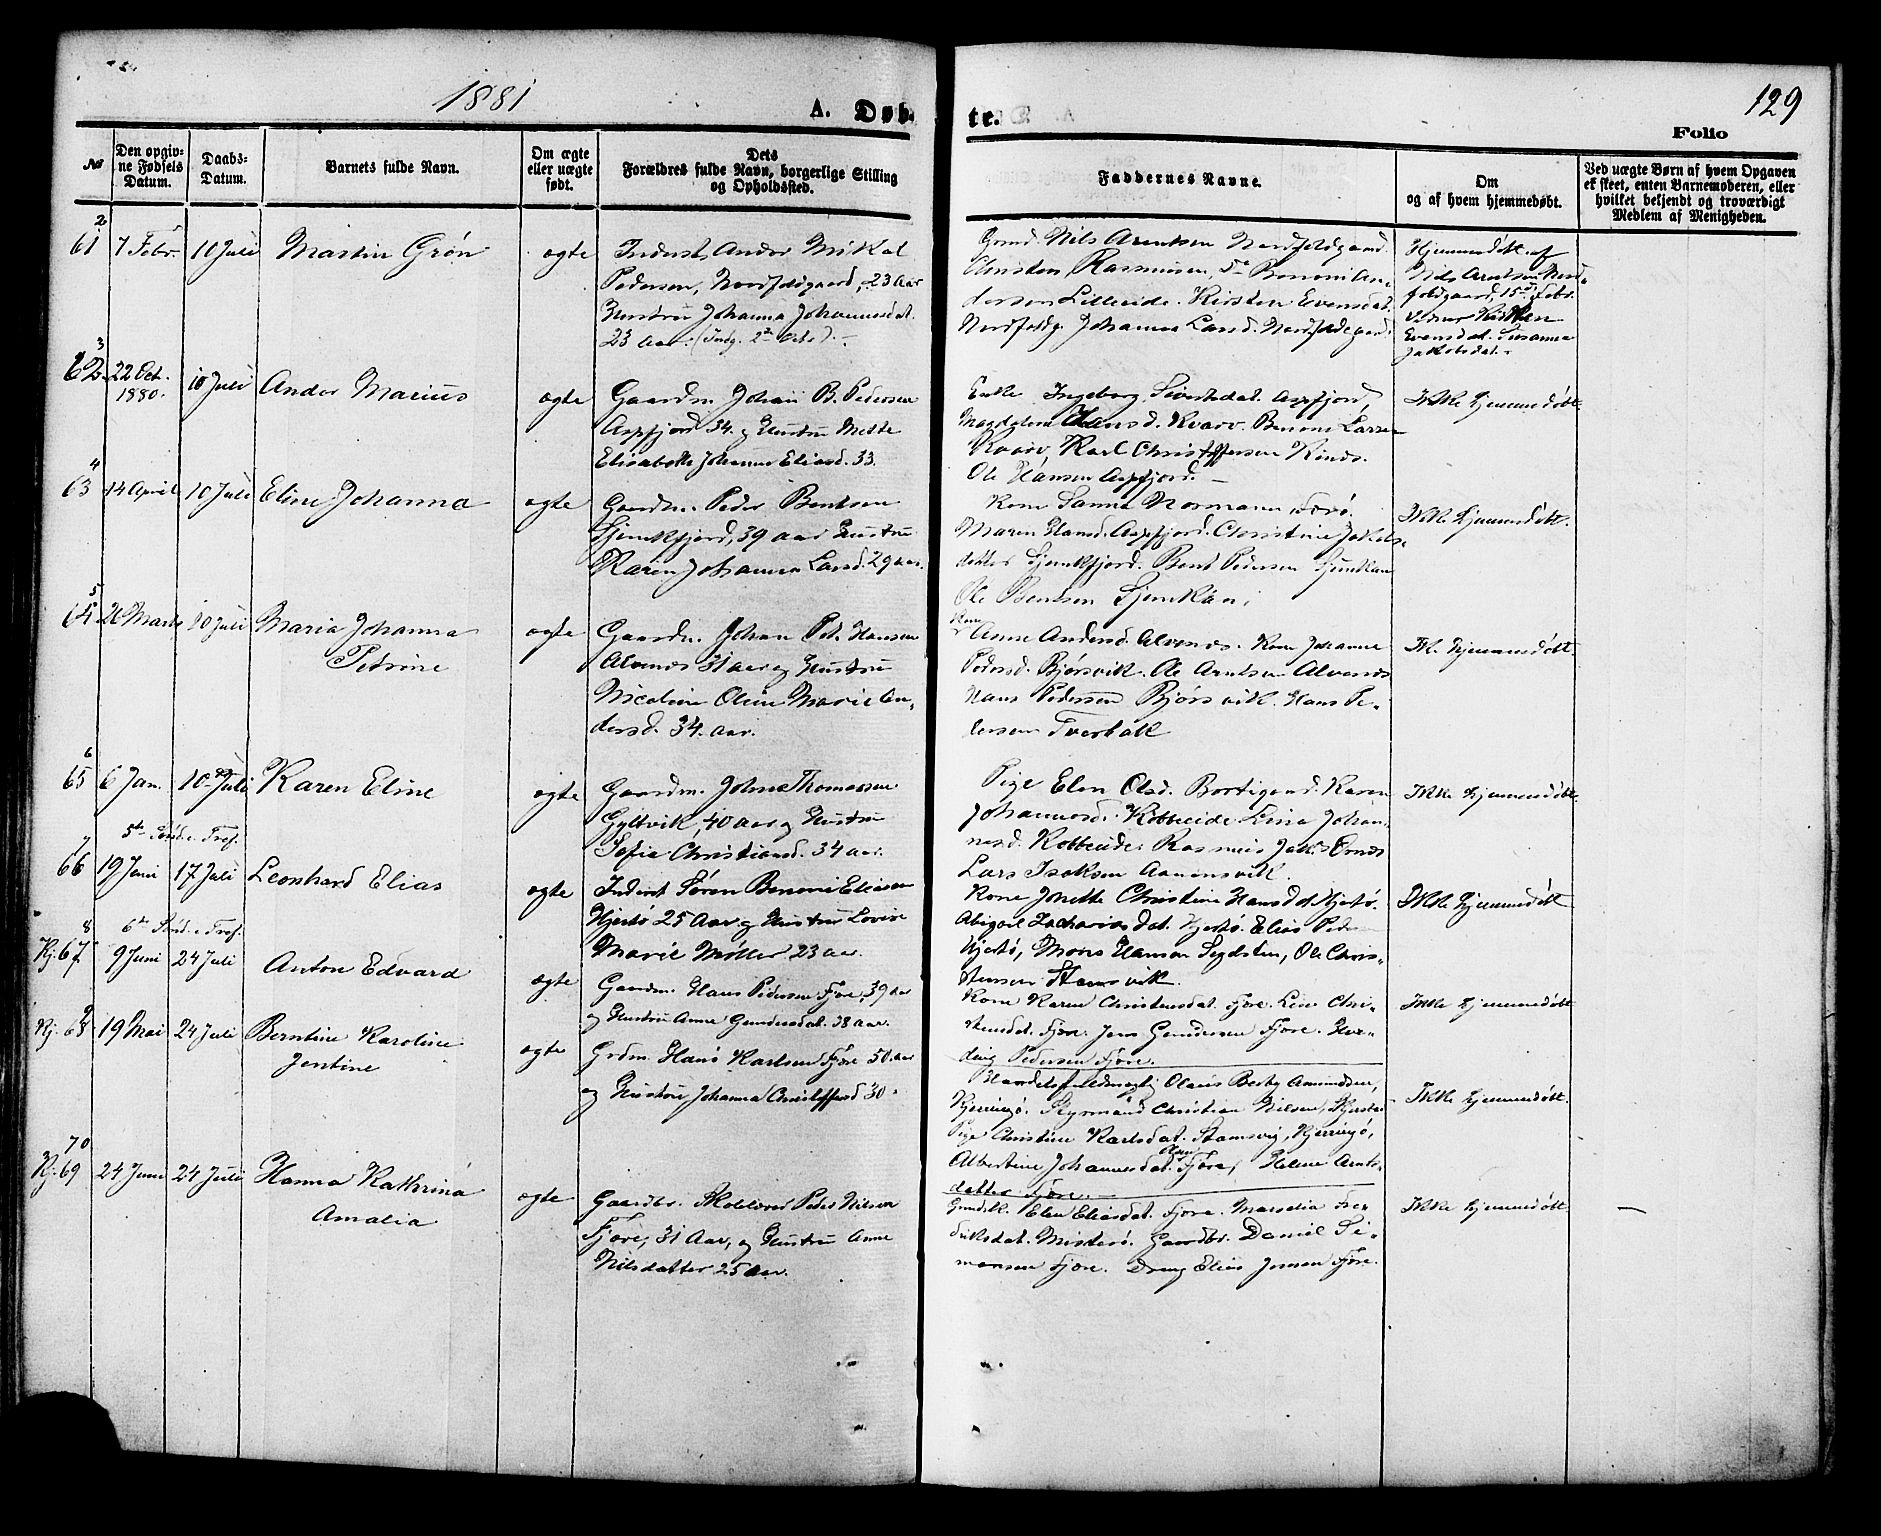 1881
A. Døb-
te.
129
Folio
No
Den opgiv-
ne Fødsels
Datum.
Daabs-
Datum.
Barnets fulde Navn.
Om ægte
eller uægte
født.
Dets
Forældres fulde Navn, borgerlige Stilling
og Opholdssted.
Faddernes Navne.
Om
og af hvem hjemmedøbt.
Ved uægte Børn af hvem Opgaven
er skeet, enten Barnemoderen, eller
hvilket bekjendt og troværdigt
Medlem af Menigheden.
2
61 7 Febr. 10 Juli Martin Grøn ægte
Inderst Andor Mikal
Pedersen, Nordfoldgaard, 23 Aar
Hustru Johanna Johannesdat.
23 Aar.
Nils Arentsen Nordfoldgaard.
Christen Rasmusen, Benoni An-
dersen Lilleeide. Kirsten Evensdat.
Nordfoldg. Johanna Larsd. Nordfoldgaard.
Hjemmedøbt af
Nils Arntsen Nord-
foldgaard, 15de Febr.
Evensdat. Susanna
Jakobsdat.
3
62. 22 Oct. 1880. 10 Juli Andor Marius ægte
Gaardm. Johan B. Pedersen
Aspfjord 34. og Hustru Mette
Elisabeth Johanna Eliasd. 33.
Enke Ingeborg Sivertsdat. Aspfjord,
Magdalena Hansd. Kvarv. Benoni Larsen
Kvarv, Karl Christoffersen
Ole Hansen Aspfjord.
Ikke hjemmedøbt
4
63 14 April 10 Juli Eline Johanna ægte
Gaardm. Peder Bentsen
Sjunkfjord, 39 aar Hustru
Karen Johanna Larsd. 29 aar.
Kone Sanna Normann
Maren Hansd. Aspfjord. Christine Jakobs-
datter Sjunkfjord. Bent Pedersen
Ole Bentsen
Ikke hjemmedøbt.
5
64 26 Marts 10 Juli Maria Johanna
Petrine
ægte
Gaardm. Johan Ped. Hansen
Alvenes 31 aar og Hustru
Nicoline Oline Marie An-
dersd. 34. aar.
Kone
Anne Andersd. Alvenes. Kone Johanna
Pedersd. Bjørsvik. Ole Arntsen Alvenes
Hans Pedersen Bjørsvik. Hans Pe-
dersen
Ik. hjemmedøbt.
6
65 6 Jan. 10 Juli Karen Eline ægte
Gaardm. Thomassen
Gyltvik, 40 aar og Hustru
Sofie Christiansd. 34 aar.
Pige Elen Olsd. Karen
Johannesd. Kobbeeide Lina Johan-
nesd. Kobbeeide. Rasmus
Lars Isaksen
Ikke hjemmedøbt.
5te Sønd. e. Tref.
7
66 19 Juni 17 Juli Leonhard Elias ægte
Inderst Søren Benoni Eliasen
Hjertø 25 Aar og Hustru Lovise
Marie Møller 23 aar.
Kone Jonette Christine Hansdat Hjertø.
Abigael Zachariasdat. Hjertø. Elias
Hjertø, Mons Hansen Ole Chris-
tensen Stamsvik.
Ikke hjemmedøbt
6te Sønd. e. Tref.
8
Kj. 67 9 Juni 24 Juli Anton Edvard ægte
Gaardm. Hans Pedersen Fjøre, 39 aar
og Hustru Anne Gundersdat. 38 aar.
Kone Karen Christensdat. Fjøre. Chri-
stensdat. Fjøre. Jens Gundersen Fjøre.
Pedersen Fjøre.
Ikke hjemmedøbt
9
Kj. 68 19 Mai 24 Juli Berntine Karoline
Jentine
ægte
Grdm. Hans Karlsen Fjøre 50 aar
og Hustru, Johanna Christoffersd 30
Handelsfuldmægtig Olaus Amundsen,
Kjerringø. Styrmand Christian Nilsen,
Pige Christine Karlsdat. Stamsvig, Kjerringø,
Albertine Johannesdat. Fjøre, Helene Arnts-
datter Fjøre.
Ikke hjemmedøbt.
70
Kj. 69 24 Juni 24 Juli Hanna Kathrina
Amalia
ægte
Gaardbr. Skolelærer Peder Nilsen
Fjøre, 31 Aar, og Hustru Anne
Nilsdatter 25 aar.
Elen Eliasdat. Fjøre. Fre-
driksdat. Misterø. Gaardbr. Daniel Si-
monsen Fjøre. Dreng Elias Jensen Fjøre.
Ikke hjemmedøbt
—